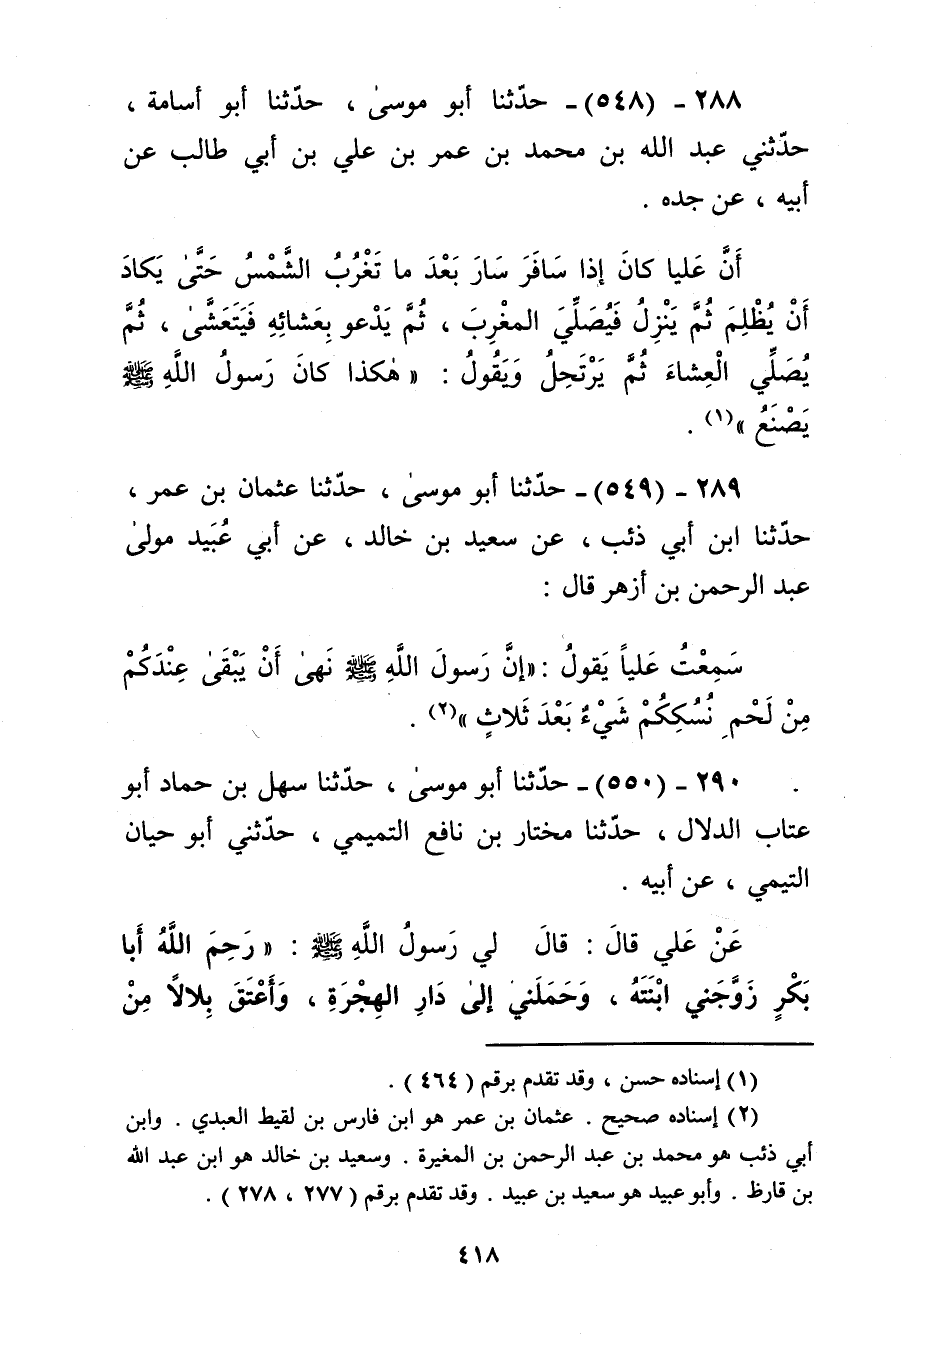 ٢٨٨ - (٥٤٨) - حدّثنا أبو موسىٰ ، حدّثنا أبو أسامة ،
حدّثني عبد الله بن محمد بن عمر بن علي بن أبي طالب عن
أبيه ، عن جده .
أَنَّ عَليا كانَ إذا سَافَرَ سَارَ بَعْدَ ما تَغْرُبُ الشَّمْسُ حَتَّىٰ يَكادَ
أَنْ يُظْلِمَ ثُمَّ يَنْزِلُ فَيُصَلِّيَ المغْرِبَ ، ثُمَّ يَدْعو بِعَشائِهِ فَيَتَعَشَّىٰ ، ثُمَّ
يُصَلِّي الْعِشاءَ ثُمَّ يَرْتَحِلُ وَيَقُولُ : « هٰكذا كانَ رَسولُ اللَّهِ ﷺ
يَصْنَعُ »(١) .
٢٨٩ - (٥٤٩) - حدّثنا أبو موسىٰ ، حدّثنا عثمان بن عمر ،
حدّثنا ابن أبي ذئب ، عن سعيد بن خالد ، عن أبي عُبَيد مولىٰ
عبد الرحمن بن أزهر قال :
سَمِعْتُ عَلياً يَقولُ : «إنَّ رَسولَ اللَّهِ ﷺ نَهىٰ أَنْ يَبْقَىٰ عِنْدَكُمْ
مِنْ لَحْمِ نُسُكِكُمْ شَيْءٌ بَعْدَ ثَلاثٍ »(٢) .
٢٩٠ - (٥٥٠) - حدّثنا أبو موسىٰ ، حدّثنا سهل بن حماد أبو
عتاب الدلال ، حدّثنا مختار بن نافع التميمي ، حدّثني أبو حيان
التيمي ، عن أبيه .
عَنْ عَلي قالَ : قالَ لي رَسولُ اللَّهِ ﷺ : « رَحِمَ اللَّهُ أَبا
بَكْرٍ زَوَّجَني ابْنَتَهُ ، وَحَمَلَني إلىٰ دَارِ الهِجْرَةِ ، وَأَعْتَقَ بِلالاً مِنْ
(١) إسناده حسن ، وقد تقدم برقم ( ٤٦٤ ) .
(٢) إسناده صحيح . عثمان بن عمر هو ابن فارس بن لقيط العبدي . وابن
أبي ذئب هو محمد بن عبد الرحمن بن المغيرة . وسعيد بن خالد هو ابن عبد الله
بن قارظ . وأبو عبيد هو سعيد بن عبيد . وقد تقدم برقم ( ٢٧٧ ، ٢٧٨ ) .
٤١٨